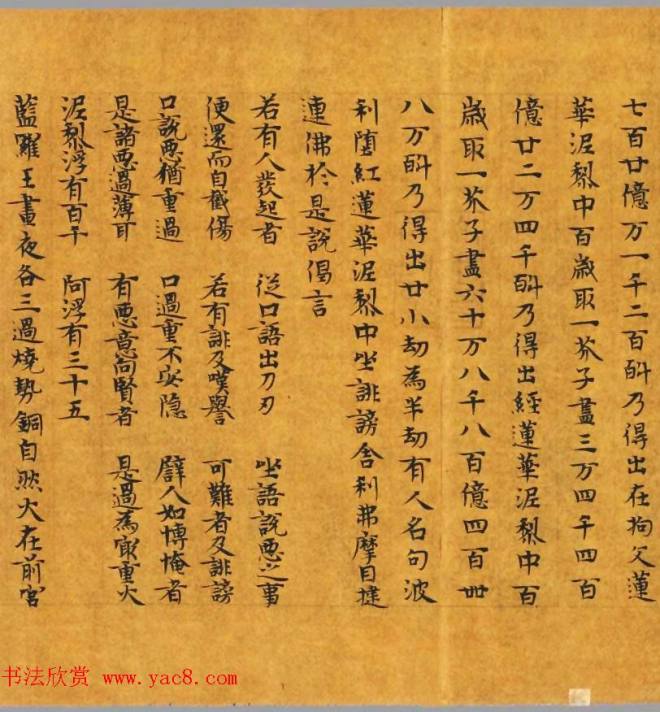 七百廿億万一千二百㪷乃得出在拘文蓮
華泥犁中百歲取一芥子盡三万四千四百
億廿二万四千㪷乃得出經蓮華泥犁中百
歲取一芥子盡六十万八千八百億四百卌
八万㪷乃得出廿小劫為半劫有人名句波
利墮紅蓮華泥犁中坐誹謗舍利弗摩目揵
連佛於是說偈言
若有人發起者 從口語出刀刃 坐語說惡之事
便還而自截傷 若有誹及嘆譽 可難者及誹謗
口說惡猶重過 口過重不安隱 譬人如博掩者
是諸惡過薄耳 有惡意向賢者 是過為㝡重大
泥犁浮有百千 阿浮有三十五
藍羅王晝夜各三過燒熱銅自然火在前宮
书法欣赏 www.yac8.com